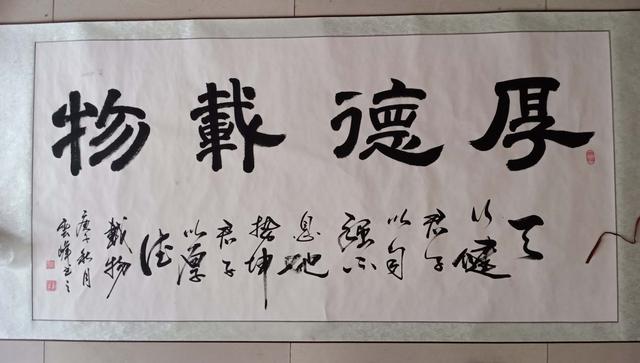 厚德載物
天
行健
君子
以自
強不
息地
势坤
君子
以厚
德
載物
庚子秋月
雲峰书之